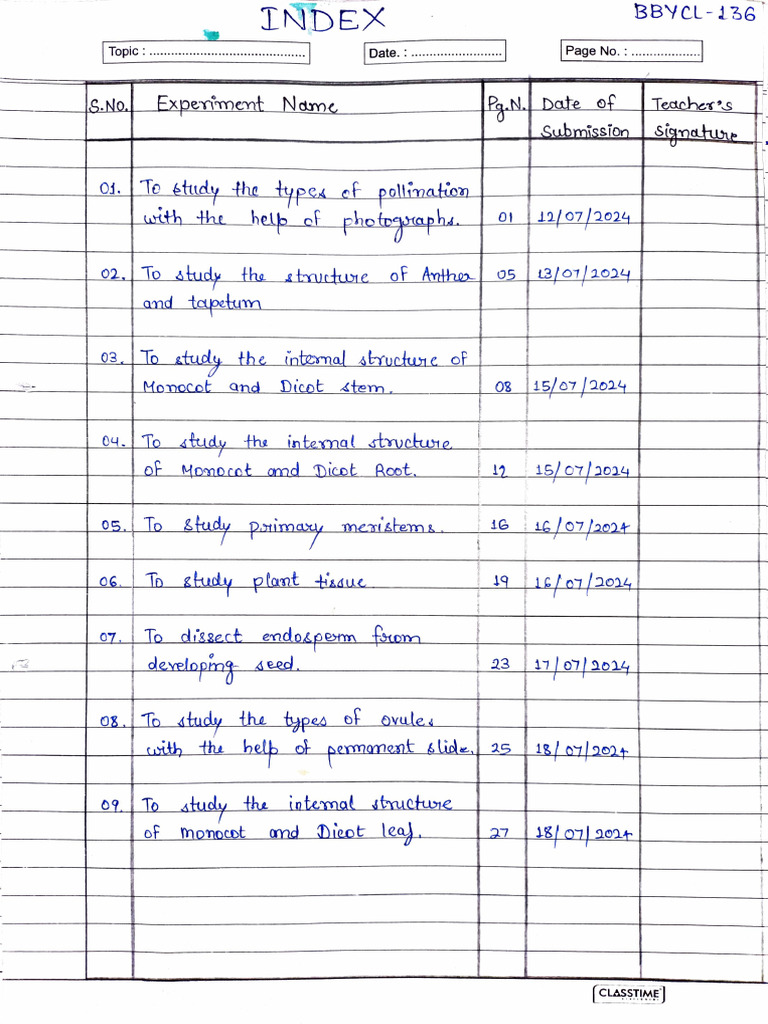 INDEX
BBYCL-136
Topic : ...........................................
Date. : .........................
Page No. : ...................
S.No. Experiment Name Pg.N. Date of Teacher's
Submission signature
01. To study the types of pollination
with the help of photographs. 01 12/07/2024
02. To study the structure of Anther 05 13/07/2024
and tapetum
03. To study the internal structure of
Monocot and Dicot stem. 08 15/07/2024
04. To study the internal structure
of Monocot and Dicot Root. 12 15/07/2024
05. To study primary meristems. 16 16/07/2024
06. To study plant tissue 19 16/07/2024
07. To dissect endosperm from
developing seed. 23 17/07/2024
08. To study the types of ovules
with the help of permanent slide. 25 18/07/2024
09. To study the internal structure
of monocot and Dicot leaf. 27 18/07/2024
CLASSTIME